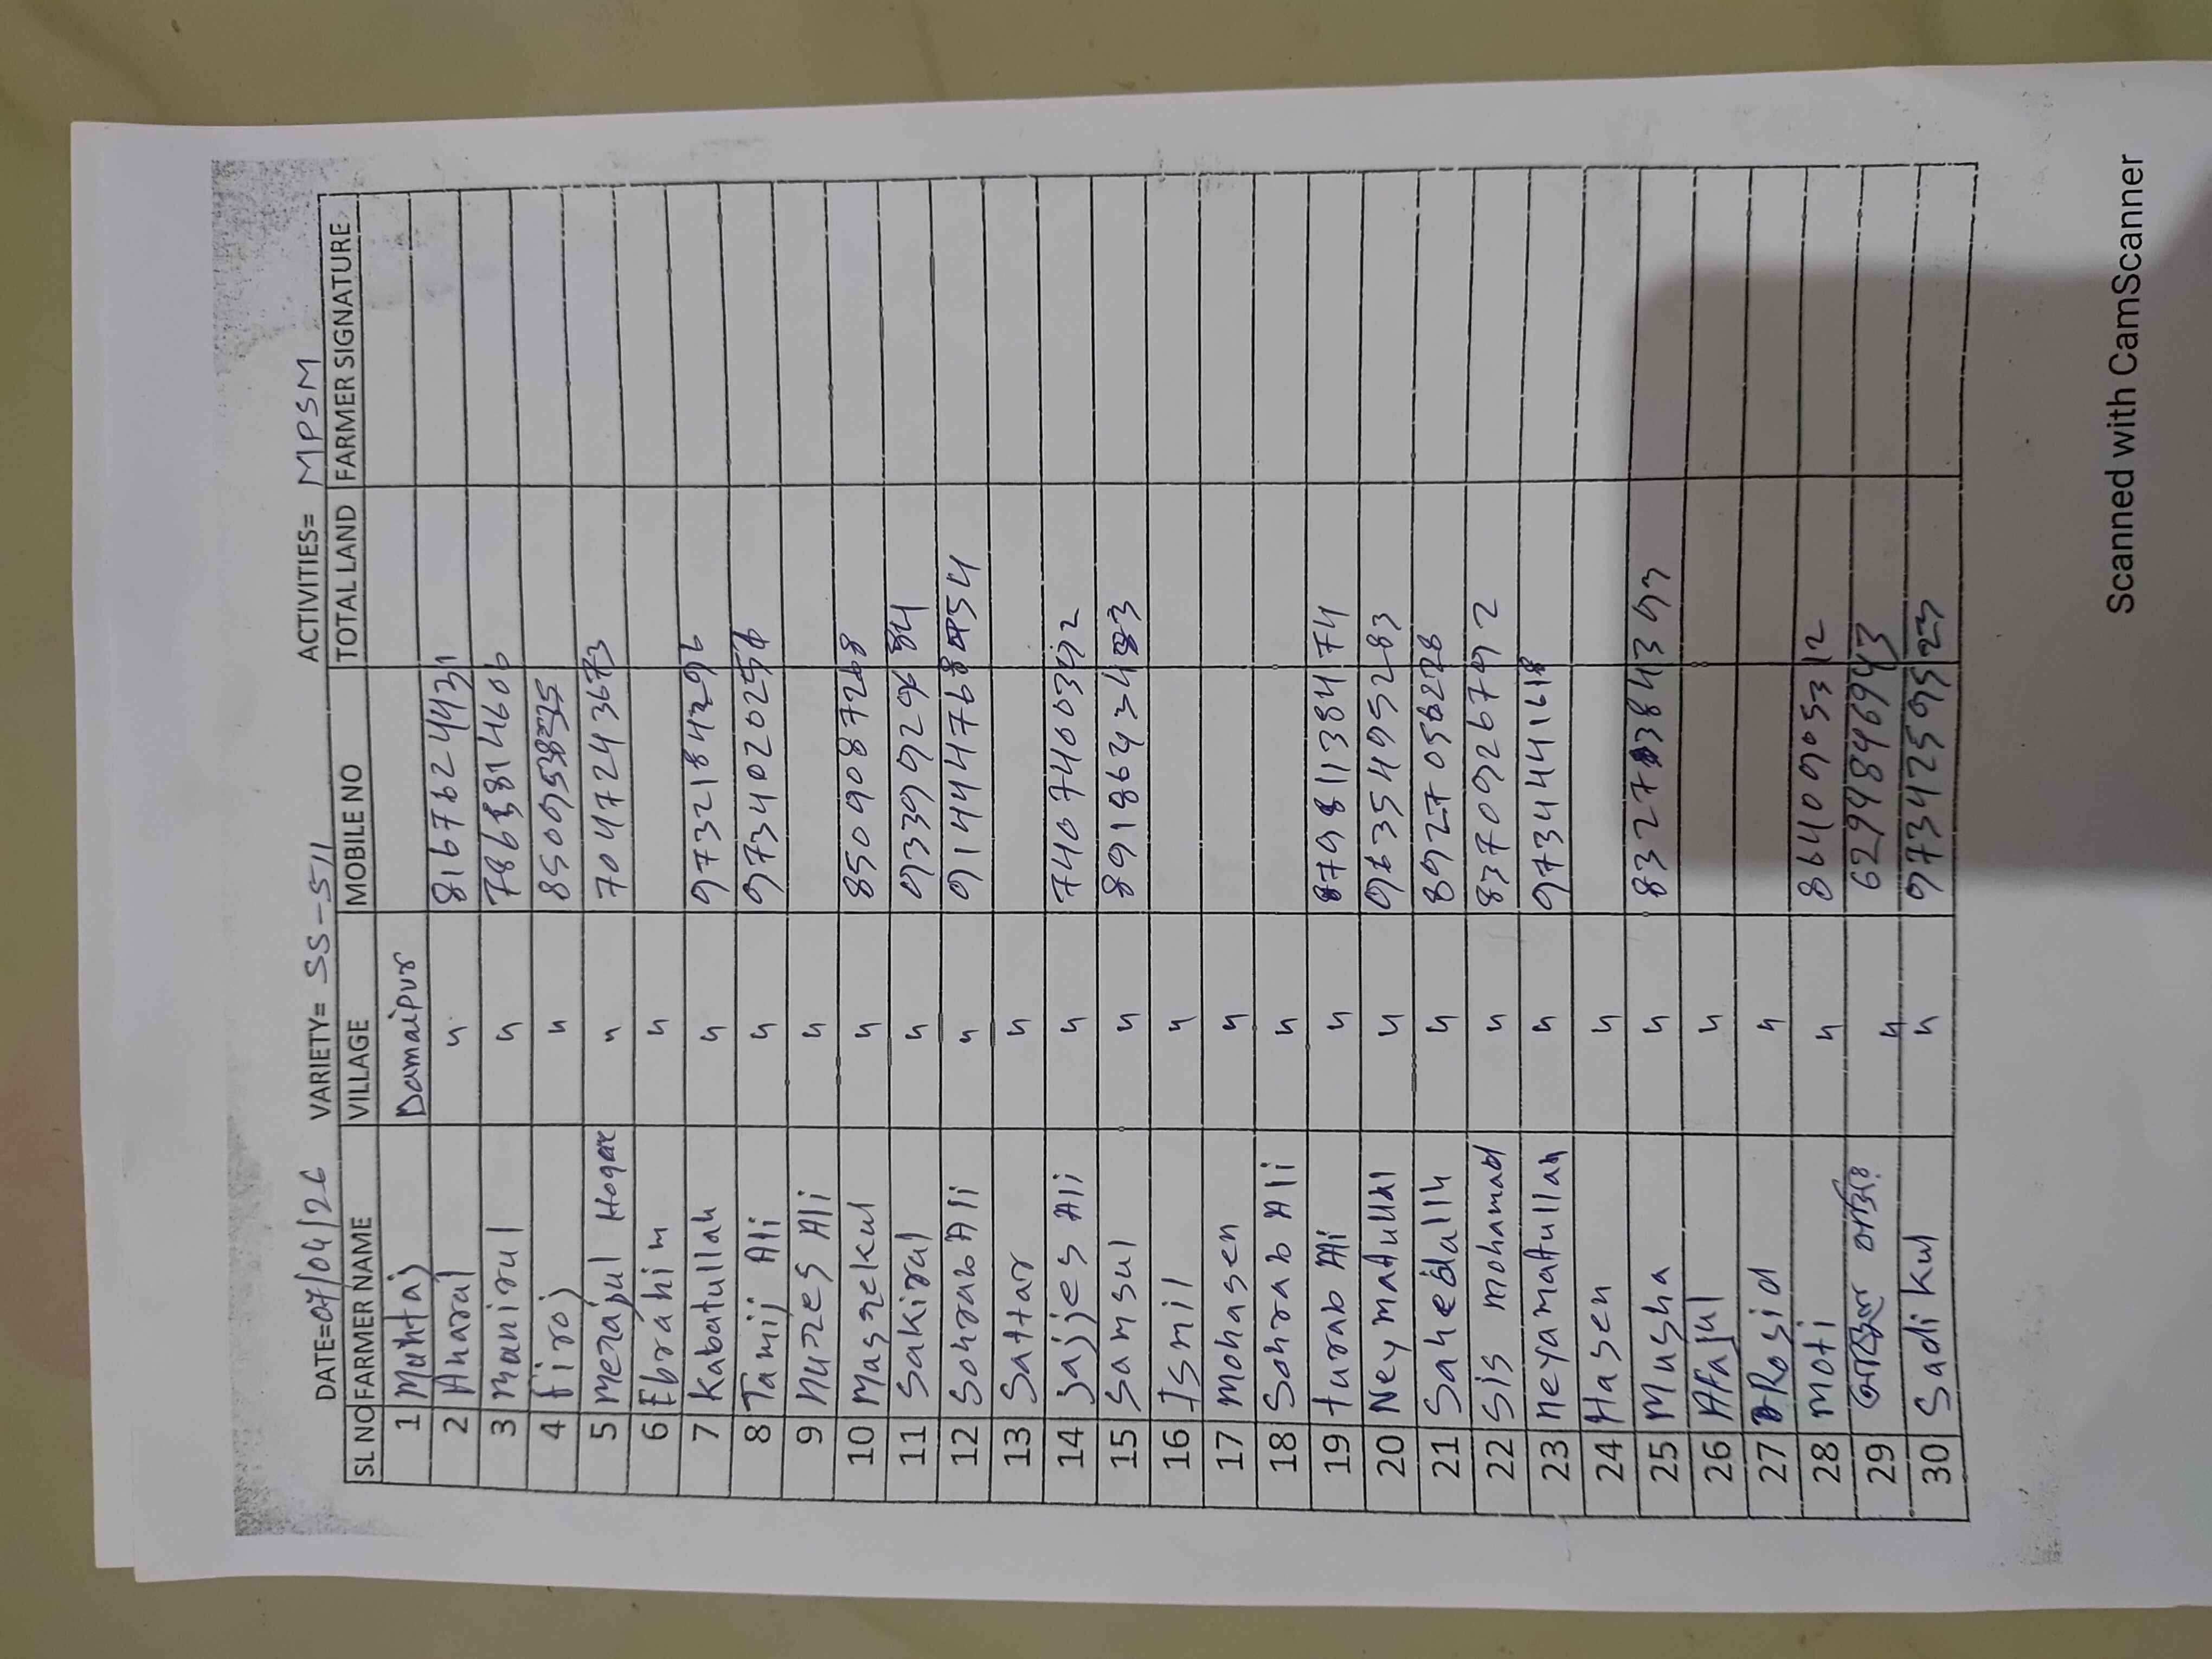 DATE=07/04/26 VARIETY= SS-511 ACTIVITIES= MPSM
SL NO FARMER NAME VILLAGE MOBILE NO TOTAL LAND FARMER SIGNATURE
1 Muktaj Damaipur
2 Anarul " 8167624431
3 Manirul " 7863814606
4 firoj " 8509538525
5 Merajul Hoque " 7047243673
6 Ebrahim "
7 Kabatullah " 9732184296
8 Tamij Ali " 9734020256
9 Nurzes Ali "
10 Masrekul " 8509087268
11 Sakirul " 9339929684
12 Sohrab Ali " 9144476854
13 Sattar "
14 Sajjes Ali " 7407400392
15 Samsul " 8918642483
16 Ismil "
17 Mohasen "
18 Sohrab Ali "
19 turab Ali " 8798113874
20 Neymatullal " 9635495283
21 Sahedallh " 8927056228
22 Sis mohamad " 8370926792
23 neyamatullah " 9734441618
24 Hasen "
25 Musha " 8327384393
26 Afajul "
27 Rosid "
28 Moti " 8640905312
29 " 6294846943
30 Sadikul " 9734259523
Scanned with CamScanner